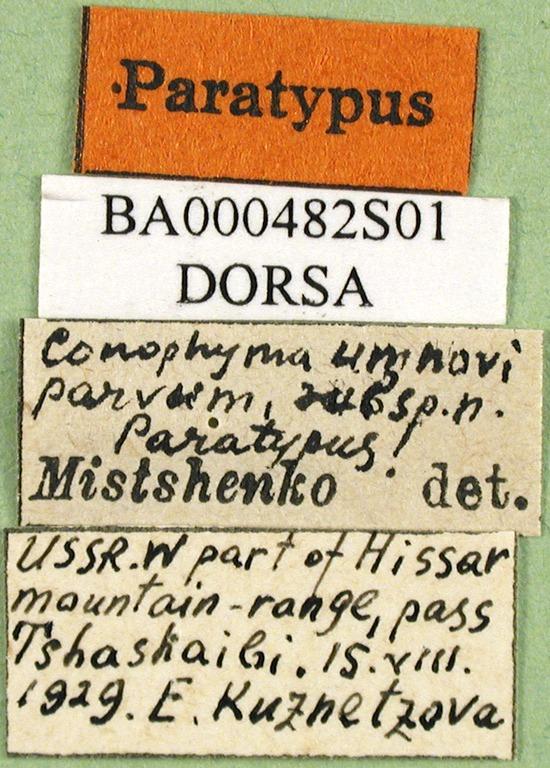 Paratypus
BA000482S01
DORSA
Conophyma umnovi
parvum, subsp.n.
Paratypus!
Mistshenko det.
USSR. W part of Hissar
mountain-range, pass
Tshaskaibi. 15.VIII.
1929. E. Kuznetzova